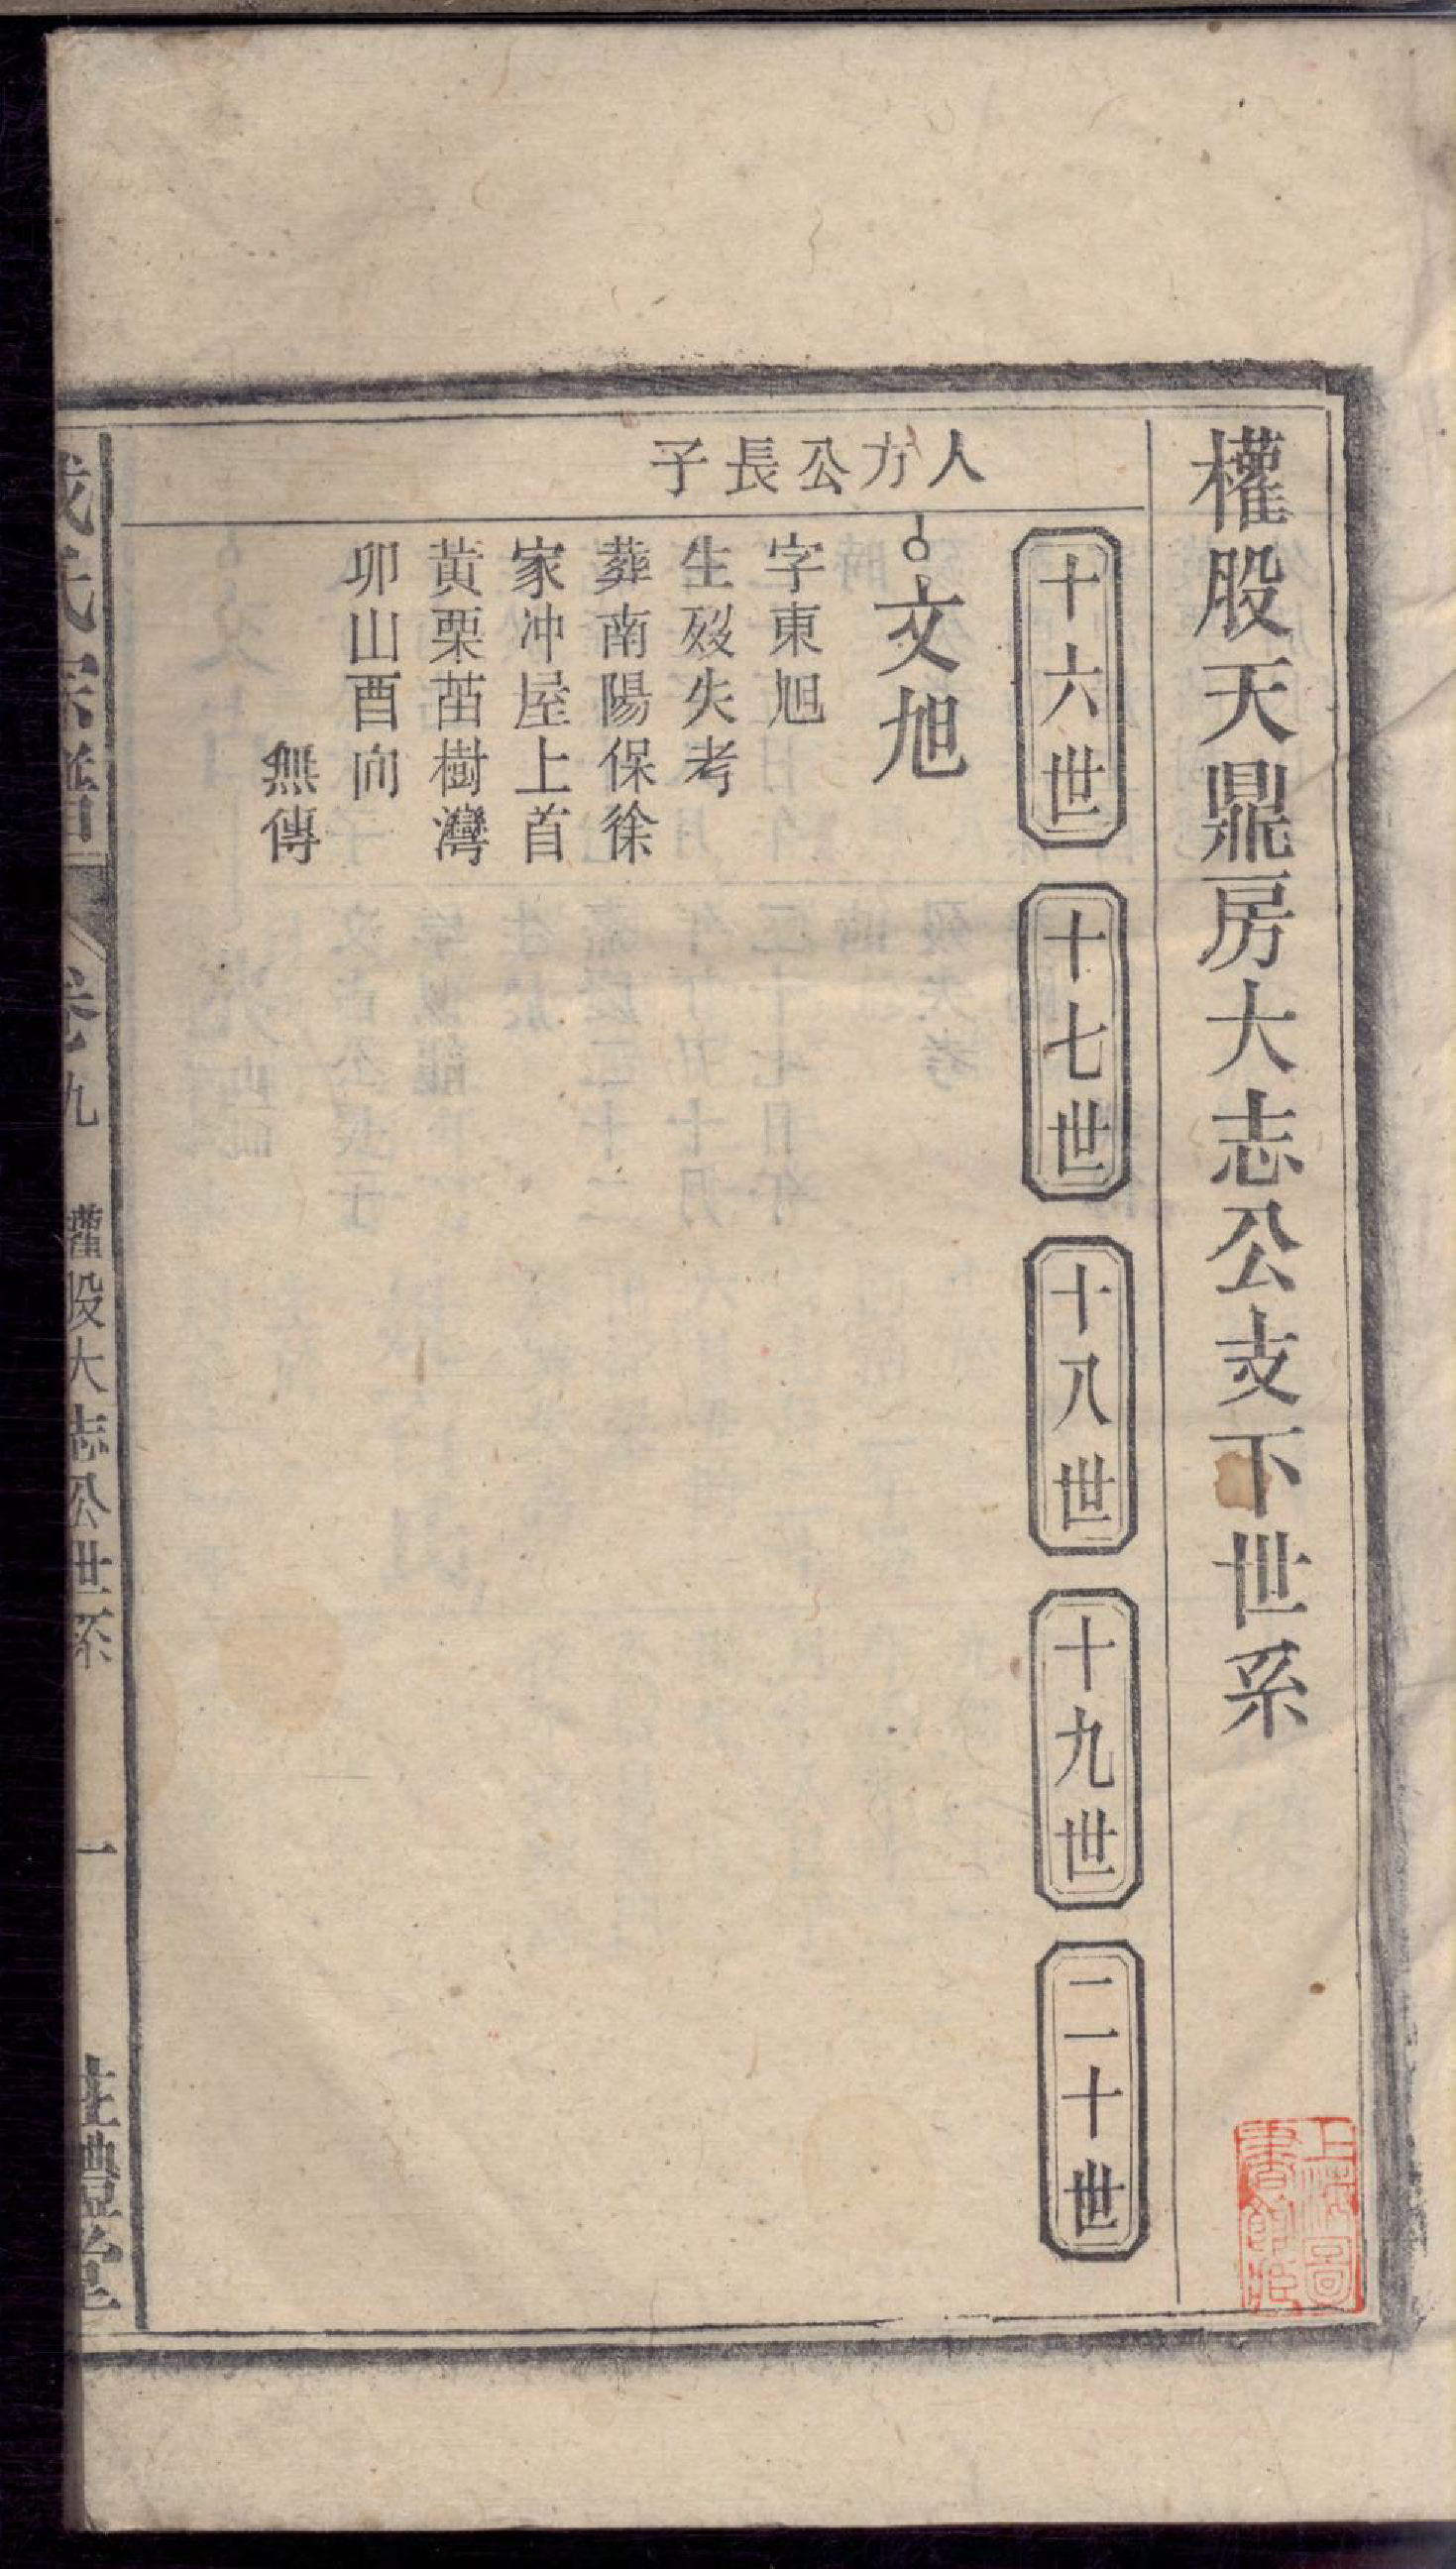 權股天鼎房大志公支下世系
十六世
十七世
十八世
十九世
二十世
人方公長子
文旭
字東旭
生歿失考
葬南陽保徐
家冲屋上首
黃栗苗樹灣
卯山酉向
無傳
氏宗譜
卷九
權股大志公世系
一
禮堂
上海圖
書館藏